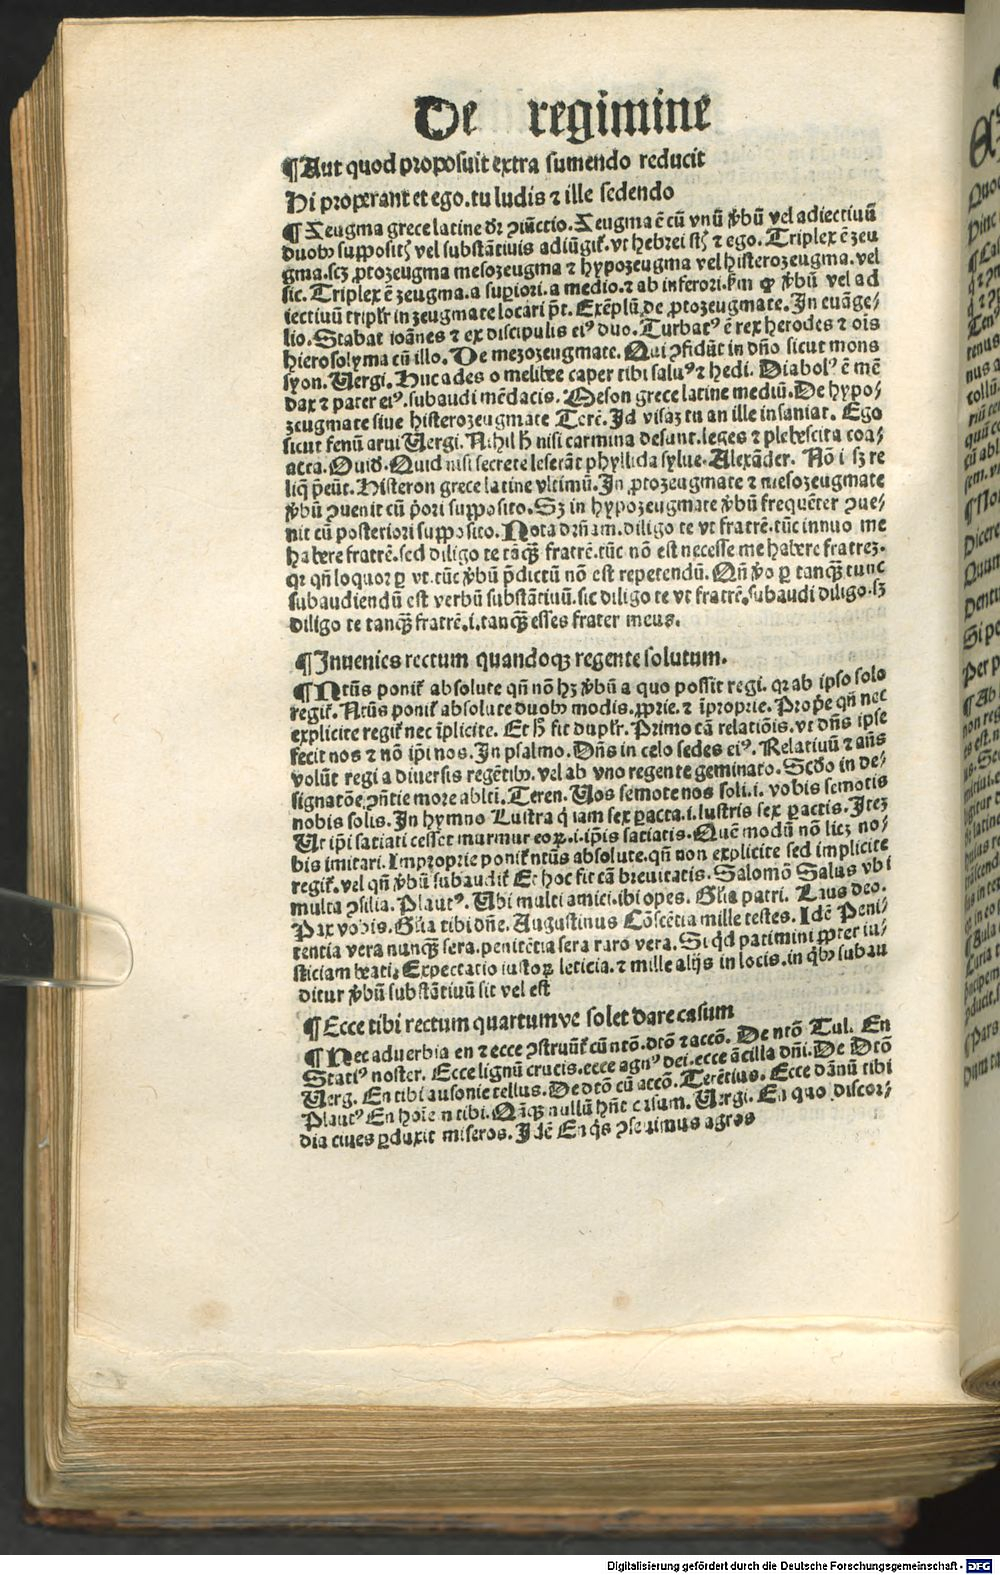 De regimine
¶Aut quod proposuit extra sumendo reducit
Hi properant et ego.tu ludis ⁊ ille sedendo
¶Zeugma grece latine dr̄ ꝯiūctio.Zeugma ē cū vnū v̓bū vel adiectiuū
duobꝰ suppositꝭ vel substātiuis adiūgit᷑.vt hebrei stꝭ ⁊ ego.Triplex ē zeu
gma.scꝫ ꝓtozeugma mesozeugma ⁊ hypozeugma vel histerozeugma.vel
sic.Triplex ē zeugma.a supiori.a medio.⁊ ab inferori.km̄ ꝙ v̓bū vel ad
iectiuū triplr̄ in zeugmate locari pt̄.Exēplū de ꝓtozeugmate.In euāge⸗
lio.Stabat ioānes ⁊ ex discipulis eiꝰ duo.Turbatꝰ ē rex herodes ⁊ oīs
hierosolyma cū illo.De mezozeugmate.Qui ꝯfidūt in dn̄o sicut mons
syon.Vergi.Huc ades o melibee caper tibi saluꝰ ⁊ hedi.Diabolꝰ ē mē
dax ⁊ pater eiꝰ.subaudi mēdacis.Meson grece latine mediū.De hypo⸗
zeugmate siue histerozeugmate Terē.Id visaꝫ tu an ille insaniat.Ego
sicut fenū arui Vergi.Nihil h̄ nisi carmina desunt.leges ⁊ plebescita coa⸗
acta.Ouid.Quid nisi secrete leserāt phyllida sylue.Alexāder. Nō i sꝫ re
liq̄ p̄eūt.Histeron grece latine vltimū.In ꝓtozeugmate ⁊ mesozeugmate
v̓bū ꝯuenit cū p̄ori supposito.Sꝫ in hypozeugmate v̓bū frequēter ꝯue⸗
nit cū posteriori supposito.Nota drn̄am.diligo te vt fratrē.tūc innuo me
habere fratrē.sed diligo te tāqꝫ fratrē.tūc nō est necesse me habere fratreꝫ.
qꝛ qn̄ loquor ꝑ vt.tūc v̓bū p̄dictū nō est repetendū.Qn̄ v̓o ꝑ tanqꝫ tunc
subaudiendū est verbū substātiuū.sic diligo te vt fratrē.subaudi diligo.sꝫ
diligo te tanqꝫ fratrē.i.tanqꝫ esses frater meus.
¶Inuenies rectum quandoqꝫ regente solutum.
¶Ntūs ponit᷑ absolute qn̄ nō hꝫ v̓bū a quo possit regi.qꝛ ab ipso solo
regit᷑.Ntūs ponit᷑ absolute duobꝰ modis.ꝓprie.⁊ īproprie.Prope qn̄ nec
explicite regit᷑ nec īplicite. Et h̄ fit duplr̄.Primo cā relatiōis.vt dn̄s ipse
fecit nos ⁊ nō ip̄i nos.In psalmo.Dn̄s in celo sedes eiꝰ.Relatiuū ⁊ an̄s
volūt regi a diuersis regētibꝰ.vel ab vno regente geminato.Scd̄o in de⸗
signatōe ꝯn̄tie more ablti.Teren.Vos semote nos soli.i. vobis semotis
nobis solis.In hymno Lustra q̄ iam sex ꝑacta.i.lustris sex ꝑactis.Iteꝫ
Vt ip̄i satiati cesset murmur eoꝝ.i.ip̄is satiatis.Quē modū nō licꝫ no⸗
bis imitari.Improprie ponit᷑ ntūs absolute.qn̄ non explicite sed implicite
regit᷑.vel qn̄ v̓bū subaudit᷑ Et hoc fit cā breuitatis.Salomō Salus vbi
multa ꝯsilia.Plautꝰ.Vbi multi amici.ibi opes. Glīa patri. Laus deo.
Pax vobis.Glīa tibi dn̄e. Augustinus Cōscētia mille testes.Idē Peni⸗
tentia vera nunqꝫ sera.penitētia sera raro vera.Si qd̓ patimini ꝓpter iu⸗
sticiam beati.Expectatio iustoꝝ leticia.⁊ mille alijs in locis.in qb̓ꝰ subau
ditur v̓bū substātiuū sit vel est
¶Ecce tibi rectum quartumve solet dare casum
¶Nec aduerbia en ⁊ ecce ꝯstruūt᷑ cū ntō.dtō ⁊ accō. De ntō Tul. En
Statiꝰ noster. Ecce lignū crucis.ecce agnꝰ dei.ecce ācilla dn̄i.De Dtō
Verg. En tibi ausonie tellus.De dtō cū accō. Terētius. Ecce dānū tibi
Plautꝰ En hoīe n tibi.Qāqꝫ nullū hn̄t casum. Vergi. En quo discor⸗
dia ciues ꝑduxit miseros.Idē En qs̓ ꝯseuimus agros
Digitalisierung gefördert durch die Deutsche Forschungsgemeinschaft - DFG